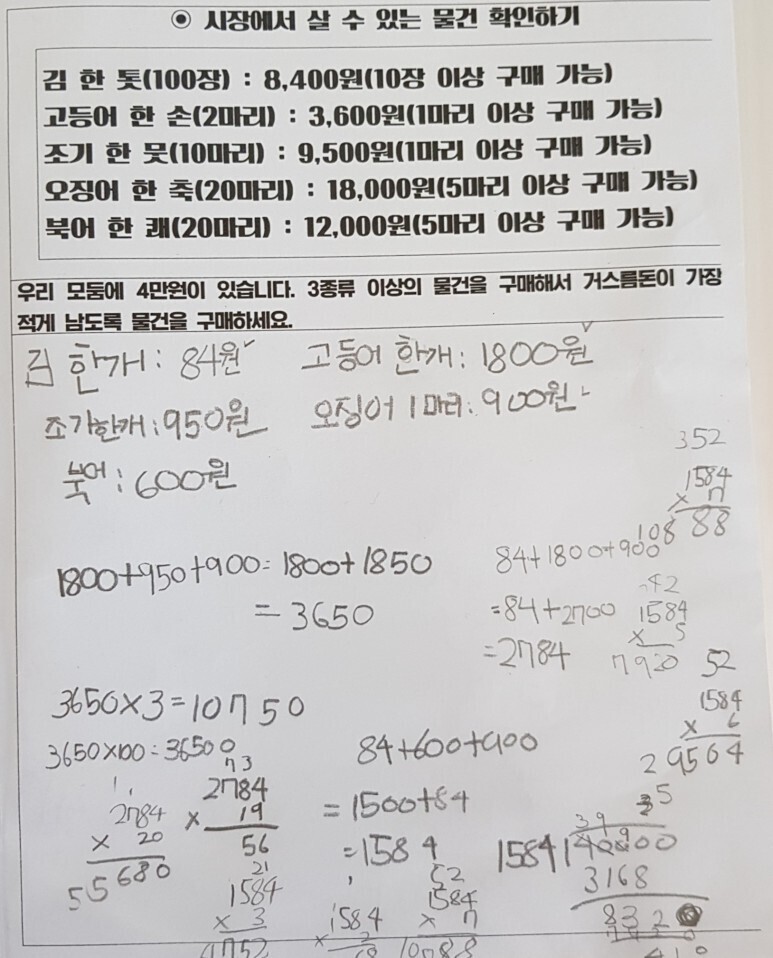 ⊙ 시장에서 살 수 있는 물건 확인하기
김 한 톳(100장) : 8,400원(10장 이상 구매 가능)
고등어 한 손(2마리) : 3,600원(1마리 이상 구매 가능)
조기 한 뭇(10마리) : 9,500원(1마리 이상 구매 가능)
오징어 한 축(20마리) : 18,000원(5마리 이상 구매 가능)
북어 한 쾌(20마리) : 12,000원(5마리 이상 구매 가능)
우리 모둠에 4만원이 있습니다. 3종류 이상의 물건을 구매해서 거스름돈이 가장
적게 남도록 물건을 구매하세요.
김 한개: 84원 고등어 한개: 1800원
조기한개: 950원 오징어 1마리: 900원
북어: 600원
352
1584
× 7
10888
1800+950+900=1800+1850
=3650
84+1800+900
=84+2700
=2784
42
1584
× 5
7920
52
1584
× 6
9564
3650×3=10750
3650×100=36500
2784
× 20
55680
73
2784
× 19
56
84+600+900
=1500+84
=1584
21
1584
× 3
4752
1584
×
52
1584
× 7
10788
1584 40000
3168
832